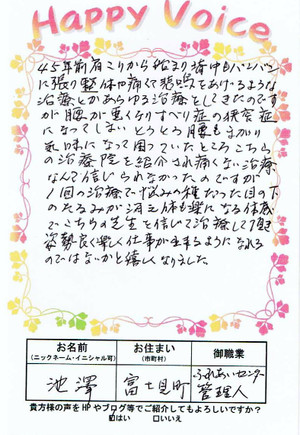 Happy Voice
45年前肩こりから始まり背中もバンバン
に張り躯体が痛くて悲鳴をあげるような
治療とかあらゆる治療をしてきたのです
が腰が悪くなりすべり症の狭窄症
になってしまいとうとう腰もまがり
気味になって困っていたところこちら
の治療院を紹介され痛くない治療
なんて信じられなかったのですが
1回の治療で悩みの種だった目の下
のたるみが消え体も楽になる体感
でこちらの先生を信じて治療して
姿勢良く楽しく仕事が出来るようになれる
のではないかと嬉しくなりました。
お名前
(ニックネーム・イニシャル可)
お住まい
(市町村)
御職業
池澤
富士見町
ふれあいセンター
管理人
貴方様の声をHPやブログ等でご紹介してもよろしいですか?
☑はい □いいえ